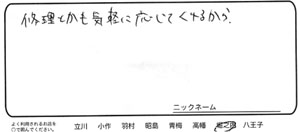 修理とかも気軽に応じてくれるから。
ニックネーム
よく利用されるお店を
○で囲んでください。
立川 小作 羽村 昭島 青梅 高幡 堀之内 八王子